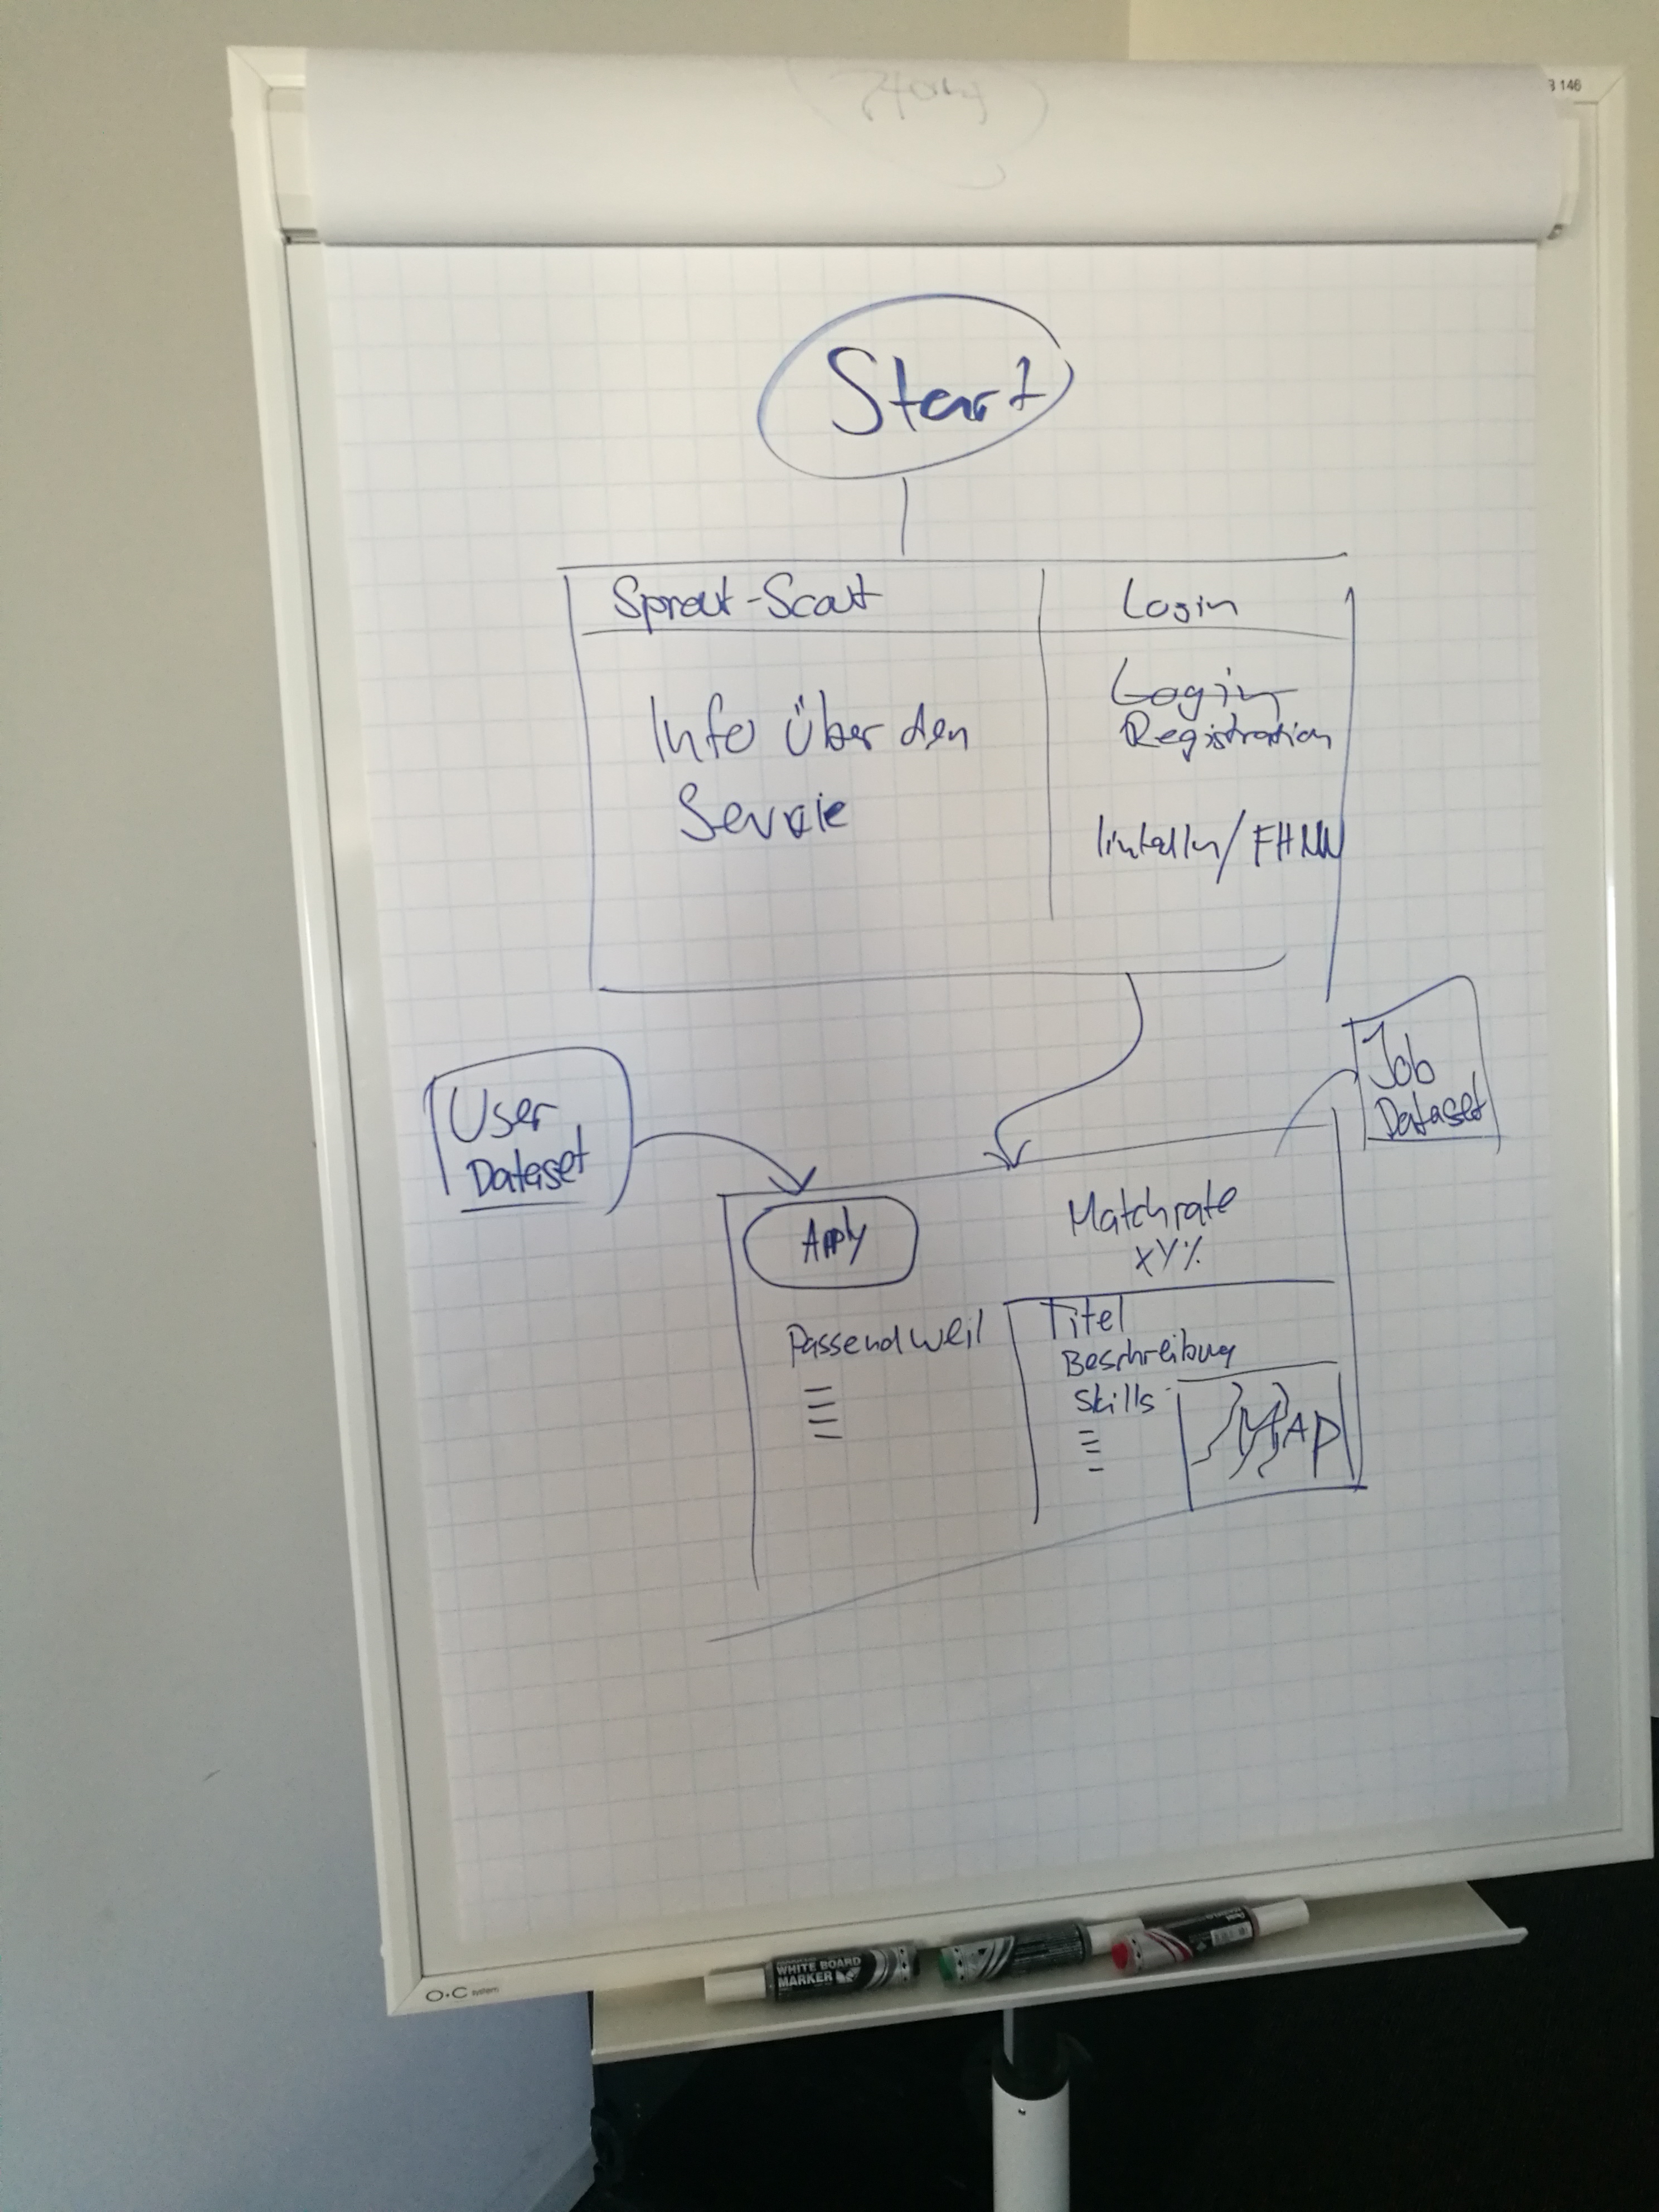 3 146
Start
Sprout-Scout
Login
Info über den
Service
Login
Registration
linkedIn/FHNW
User
Dataset
Job
Dataset
Apply
Matchrate
XY%
Passend weil
Titel
Beschreibung
Skills
MAP
WHITE BOARD
MARKER
O·C system